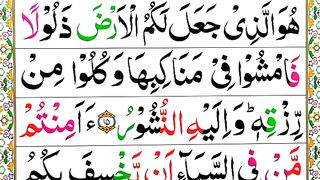 هُوَ الَّذِیْ جَعَلَ لَكُمُ الْاَرْضَ ذَلُوْلًا
فَامْشُوْا فِیْ مَنَاكِبِهَا وَكُلُوْا مِنْ
رِّزْقِهٖؕ وَاِلَیْهِ النُّشُوْرُ ۝۱۵ ءَاَمِنْتُمْ
مَّنْ فِی السَّمَآءِ اَنْ یَّخْسِفَ بِكُمُ